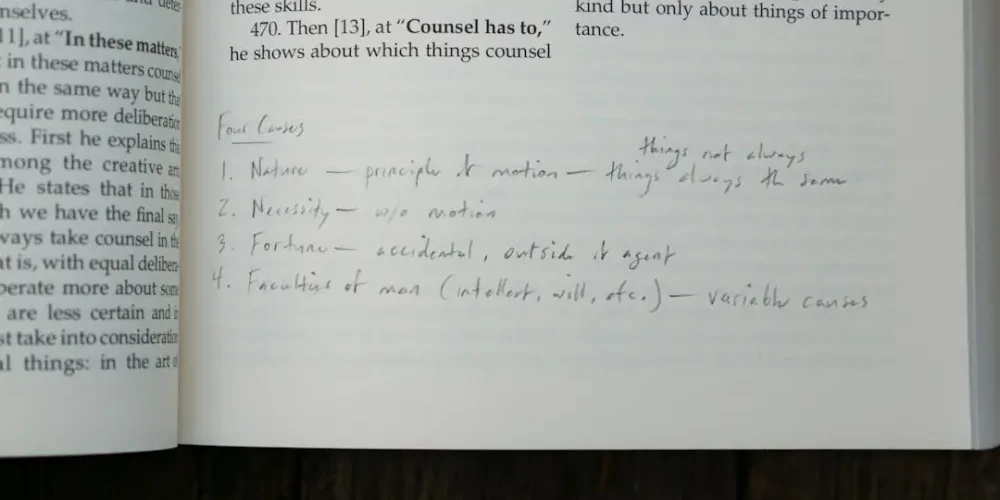 nselves.
11], at "In these matters,
in these matters counse
n the same way but the
equire more deliberation
ss. First he explains this
mong the creative art
He states that in those
h we have the final say
ways take counsel in the
at is, with equal deliben-
perate more about some
are less certain and in
st take into consideration
al things: in the art o
these skills.
470. Then [13], at "Counsel has to,"
he shows about which things counsel
kind but only about things of impor-
tance.
Four Causes
things not always
1. Nature — principle of motion — things always the same
2. Necessity — w/o motion
3. Fortune — accidental, outside of agent
4. Faculties of man (intellect, will, etc.) — variable causes